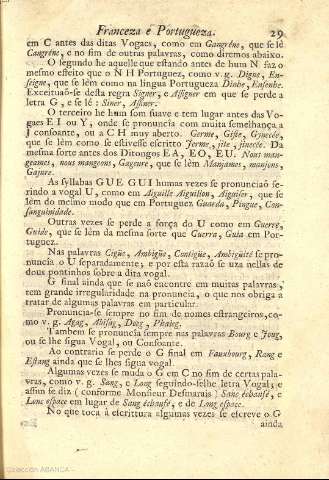 Franceza e Portugueza. 29
em C antes das ditas Vogaes, como em Gangréne, que se lê
Cangréne, e no fim de outras palavras, como diremos abaixo.
O segundo he aquelle que estando antes de hum N faz o
mesmo effeito que o N H Portuguez, como v. g. Digne, En-
seigne, que se lêm como na lingua Portugueza Dinhe, Ensenhe.
Exceituaõ-se desta regra Signer, e Assigner em que se perde a
letra G, e se lê: Siner, Assiner.
O terceiro he hum som suave e tem lugar antes das Vo-
gaes E I ou Y, onde se pronuncia com muita semelhança a
J consoante, ou a CH muy aberto. Germe, Giste, Gynecée,
que se lêm como se estivesse escritto Jerme, jite, jinecée. Da
mesma sorte antes dos Ditongos EA, EO, EU. Nous man-
geames, nous mangeons, Gageure, que se lêm Manjames, manjons,
Gajure.
As syllabas GUE GUI humas vezes se pronunciaõ fe-
rindo a vogal U, como em Aiguille Aiguillon, Aiguiser, que se
lêm do mesmo modo que em Portuguez Guarda, Pingue, Con-
sanguinidade.
Outras vezes se perde a força do U como em Guerre,
Guide, que se lêm da mesma sorte que Guerra, Guia em Por-
tuguez.
Nas palavras Cigüe, Ambigüe, Contigüe, Ambigüité se pro-
nuncia o U separadamente, e por esta razaõ se uza nellas de
dous pontinhos sobre a dita vogal.
G final ainda que se naõ encontre em muitas palavras,
tem grande irregularidade na pronuncia, o que nos obriga a
tratar de algumas palavras em particular.
Pronuncia-se sempre no fim de nomes estrangeiros, co-
mo v. g. Agag, Abisag, Doeg, Phaleg.
Tambem se pronuncia sempre nas palavras Bourg e Joug,
ou se lhe sigua Vogal, ou Consoante.
Ao contrario se perde o G final em Fauxbourg, Rang e
Estang ainda que se lhes sigua vogal.
Algumas vezes se muda o G em C no fim de certas pala-
vras, como v. g. Sang, e Long seguindo-selhe letra Vogal; e
assim se diz (conforme Monsieur Desmarais) Sanc échaufé, e
Lonc espace em lugar de Sang échaufé, e de Long espace.
No que toca á escrittura algumas vezes se escreve o G
ainda
Colección ABANCA